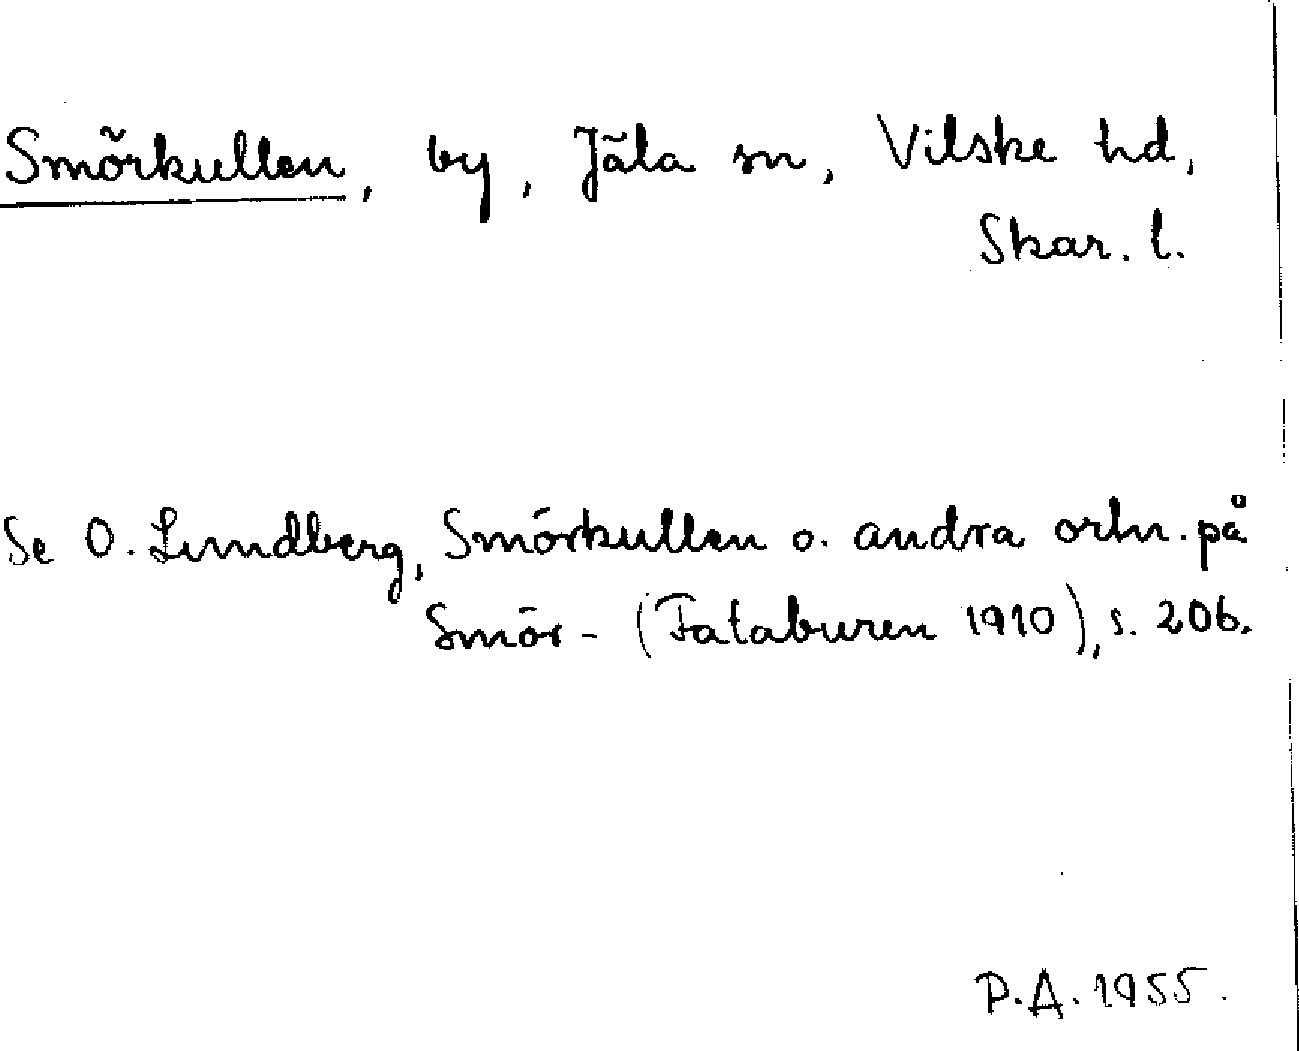 Smörkullen, by, Jäla sn, Vilske hd,
Skar. l.
Se O. Lundberg, Smörkullen o. andra ortn. på
Smör- (Fataburen 1910), s. 206.
P.A. 1955.